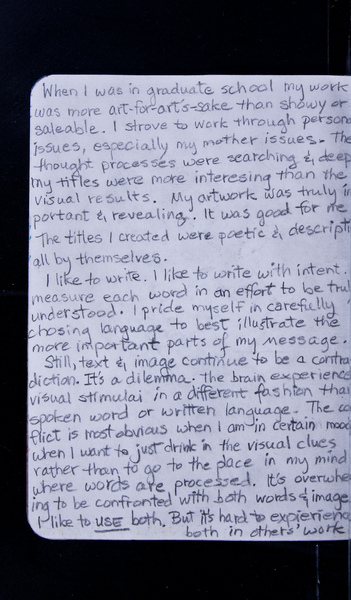 When I was in graduate school my work
was more art-for-art's-sake than showy or
saleable. I strove to work through person
issues, especially my mother issues. The
thought processes were searching & deep
my titles were more interesing than the
visual results. My artwork was truly im
portant & revealing. It was good for me
The titles I created were poetic & descripti
all by themselves.
I like to write. I like to write with intent.
measure each word in an effort to be trul
understood. I pride myself in carefully
chosing language to best illustrate the
more important parts of my message.
Still, text & image continue to be a contra
diction. It's a dilemma. The brain experience
visual stimulai in a different fashion than
spoken word or written language. The co
flict is most obvious when I am in certain mood
when I want to just drink in the visual clues
rather than to go to the place in my mind
where words are processed. It's overwhe
ing to be confronted with both words & image
I like to USE both. But it's hard to expierienc
both in others' work